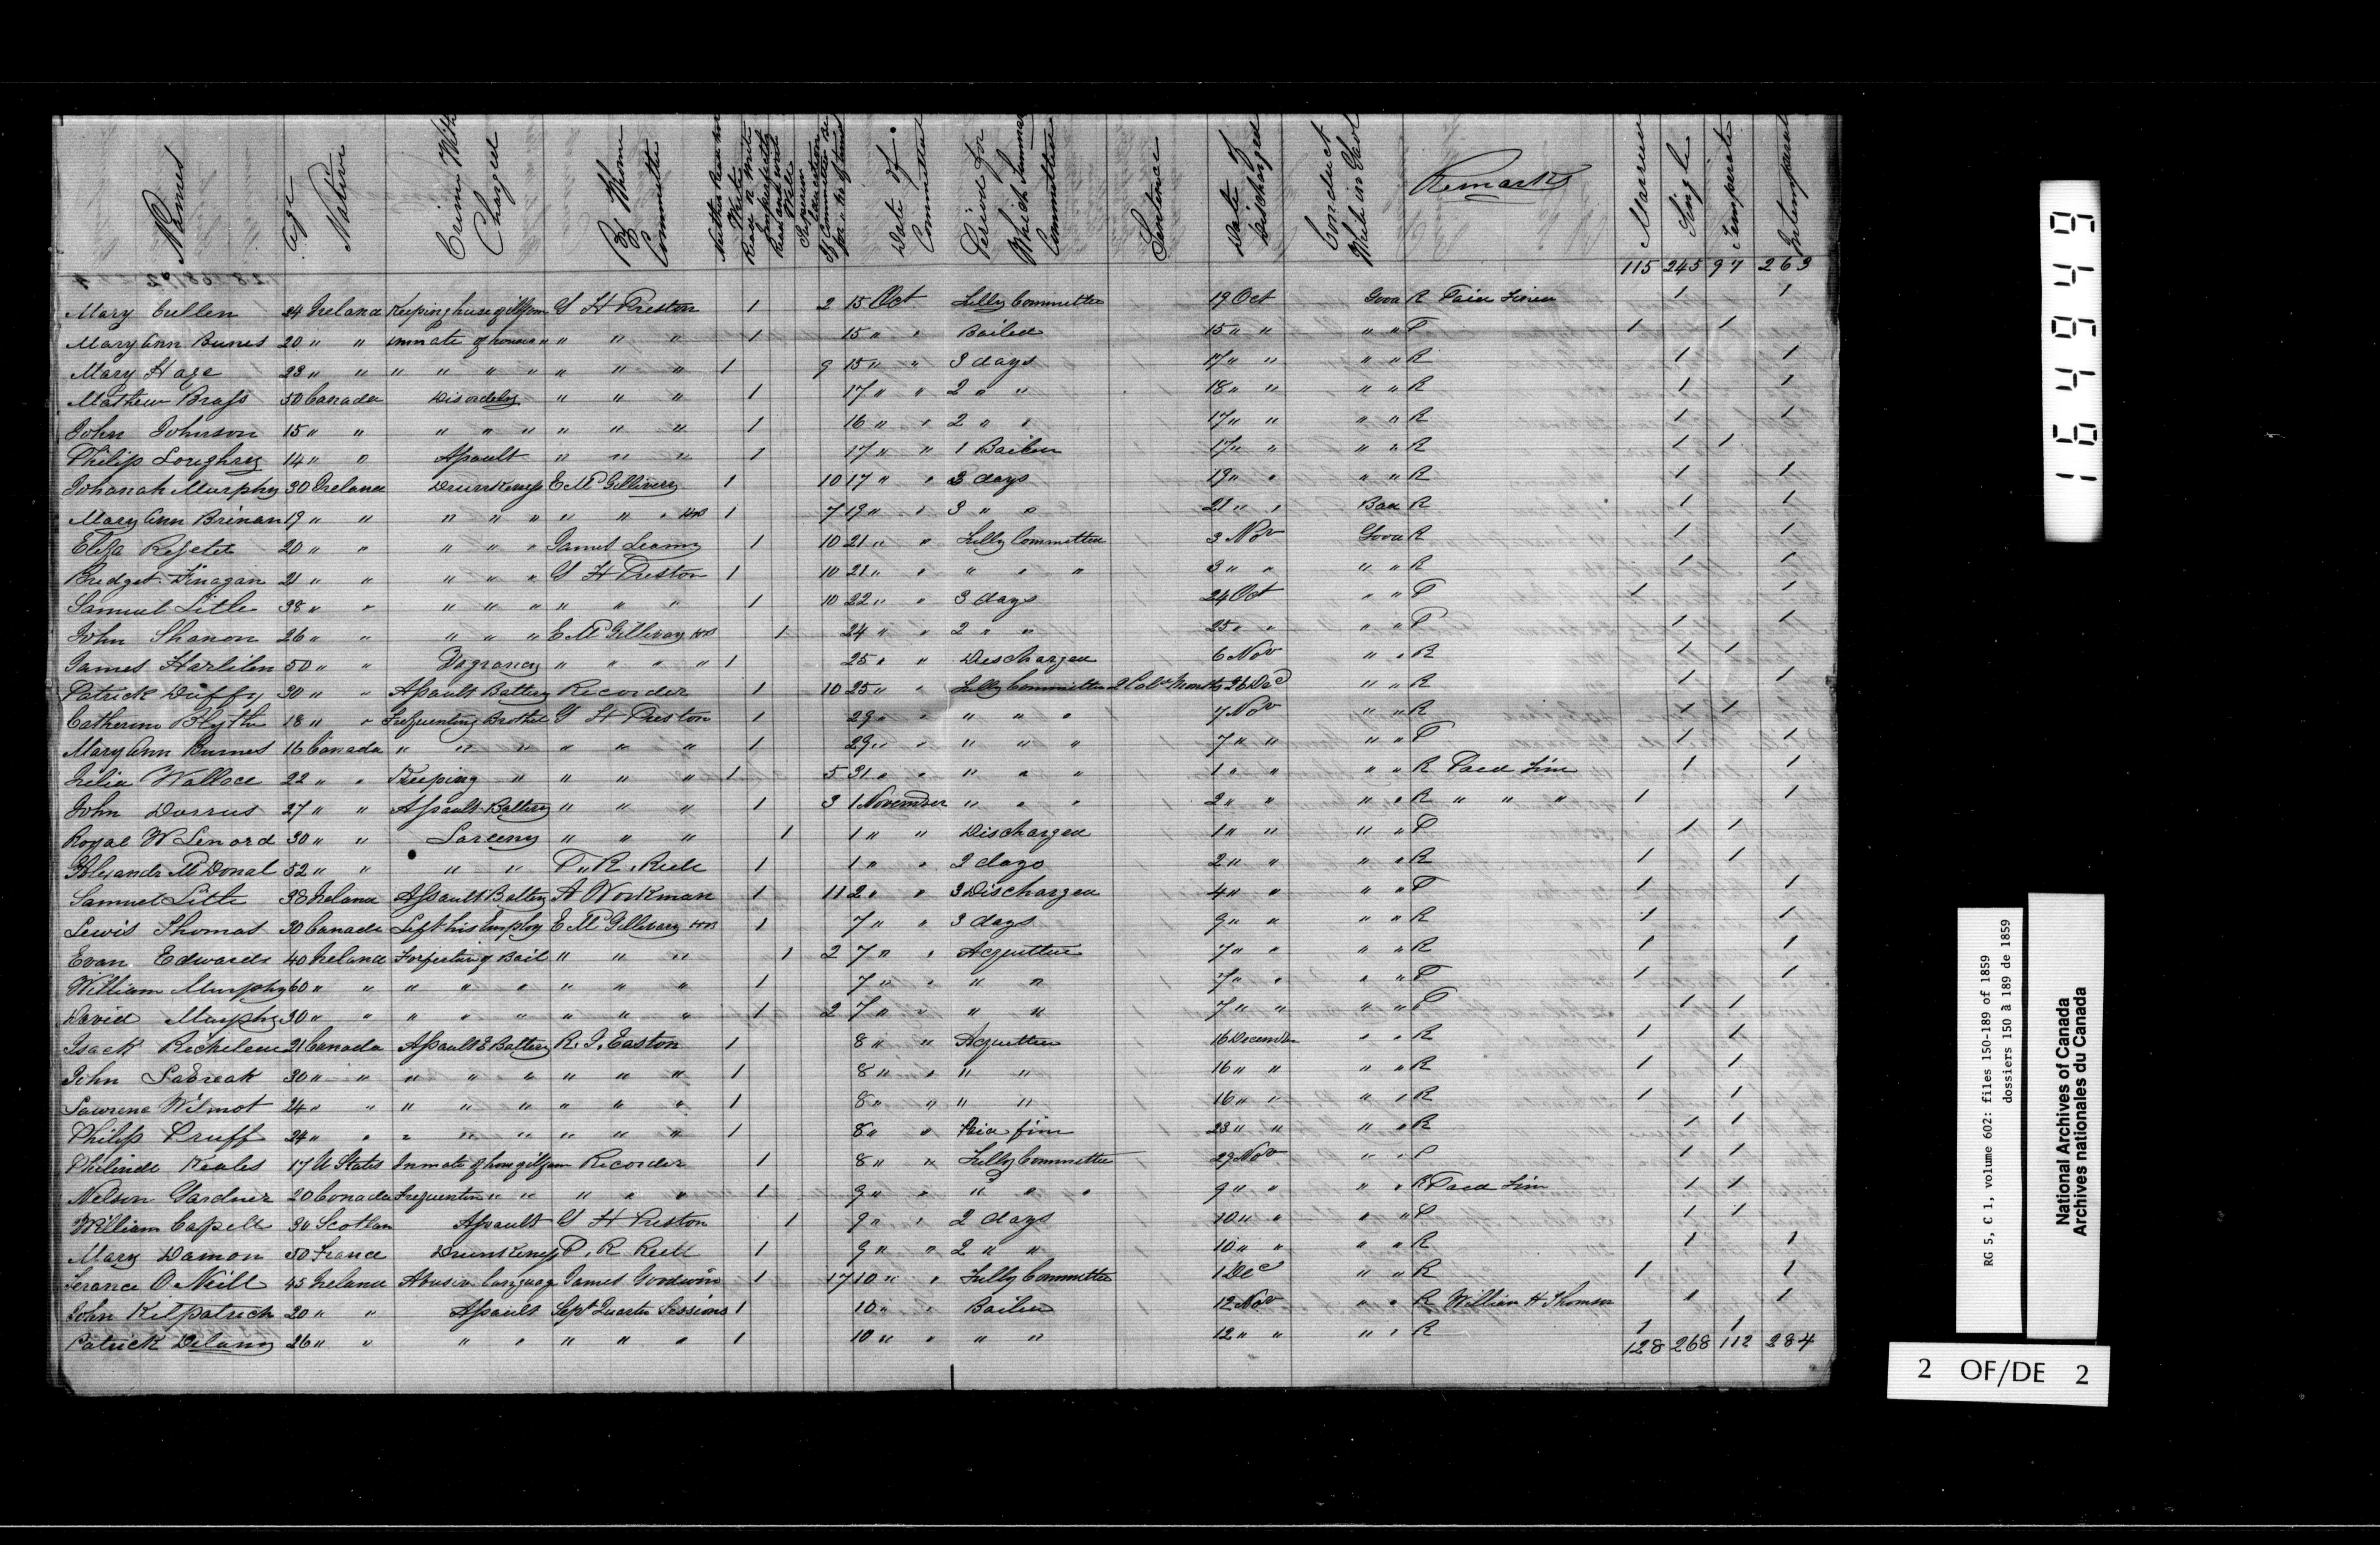 Names Age Native Crime With Charged By Whom Committed Neither Read nor Write Read & Write Imperfectly Read and write Well Superior Education If Committed before No of times Date of Committal Period for Which Summary Committed Sentence Date of Discharged Conduct While in Gaol Remarks Married Single Temperate Intemperate
115 245 97 263
Mary Cullen 24 Ireland Keeping house of illfam G H Preston 1 2 15 Oct Fully Committed 19 Oct Good R Paid Fine 1 1
Mary Ann Burns 20 " " Inmate of house " " " " 1 15 " " Bailed 15 " " " " P 1 1
Mary Hage 23 " " " " " " " " " 1 9 15 " " 3 days 17 " " " " R 1 1
Mathew Brass 50 Canada Disordely " " " 1 17 " " 2 " " 18 " " " " R 1 1
John Johnson 15 " " " " " " " " 1 16 " " 2 " " 17 " " " " R 1 1
Philip Loughrey 14 " " Assault " " " 1 17 " " 1 Bailed 17 " " " " R 1 1
Johanah Murphy 30 Ireland Drunkenss E McGillivery 1 10 17 " " 3 days 19 " " " " R 1 1
Mary Ann Brinan 19 " " " " " " " " 1 7 19 " " 3 " " 21 " " Bad R 1 1
Eliza 20 " " " " " James Leamy 1 10 21 " " Fully Committed 3 Nov Good R 1 1
Bridget Finagan 21 " " " " " G H Preston 1 10 21 " " " " " 3 " " " " R 1 1
Samuel Litle 38 " " " " " " " " 1 10 22 " " 3 days 24 Oct " " P 1 1
John Shanon 26 " " " " " E McGillivray 1 24 " " 2 " " 25 " " " " P 1 1
James 50 " " Vagrancy " " " " 1 25 " " Discharged 6 Nov " " R 1 1
Patrick Duffy 30 " " Assault Battery Recorder 1 10 25 " " Fully Committed 2 Months 26 Dec " " R 1 1
Catherine Blyth 18 " " Frequenting Brothel G H Preston 1 29 " " " " " 7 Nov " " R 1 1
Mary Ann Burnes 16 Canada " " " " " " 1 29 " " " " " 7 " " " " P 1 1
Julia Wallace 22 " " Keeping " " " " 1 5 31 " " " " " 1 " " " " R Paid Fine 1 1
John Dorrus 27 " " Assault Battery " " " 1 3 1 November " " " 2 " " " " R " " " 1 1
Royal W Lenord 30 " " Larceny " " " 1 1 " " Discharged 1 " " " " P 1 1
Alexandr McDonal 52 " " " " P. R. Rull 1 1 " " 2 days 2 " " " " R 1 1
Samuel Litle 38 Ireland Assault Battery A Workman 1 11 2 " " 3 Discharged 4 " " " " P 1 1
Lewis Thomas 30 Canada Left his Employ E McGillivary 1 7 " " 3 days 9 " " " " R 1 1
Evan Edwards 40 Ireland Forfeiting Bail " " " 1 2 7 " " Acquitted 7 " " " " R 1 1
William Murphy 60 " " " " " " " " 1 7 " " " " 7 " " " " P 1 1
David Murphy 30 " " " " " " " " 1 2 7 " " " " 7 " " " " P 1 1
Isack Richileu 21 Canada Assault & Battery R. J. Easton 1 8 " " Acquitted 16 December " " R 1 1
John 30 " " " " " " " " 1 8 " " " " 16 " " " " R 1 1
Lawrence Wilmot 24 " " " " " " " " 1 8 " " " " 16 " " " " R 1 1
Philip Pruff 24 " " " " " " " " 1 8 " " Paid fine 23 " " " " R 1 1
Philinde 17 U States Inmate of hous illfam Recorder 1 8 " " Fully Committed 29 Nov " " P 1 1
Nelson Gardner 20 Canada Frequenten " " " " " 1 9 " " " " " 9 " " " " R Paid Fine 1 1
William Capell 30 Scotlan Assault G H Preston 1 9 " " 2 days 10 " " " " P 1 1
Mary Damon 50 France Drunkenss P. R Rull 1 9 " " 2 " " 10 " " " " R 1 1
Terance O Neill 45 Ireland Abusiv language James Goodwin 1 17 10 " " Fully Committed 1 Dec " " R 1 1
John Kilpatrick 20 " " Assault Sept Quarter Sessions 1 10 " " Bailed 12 Nov " " R William H Thomson 1 1
Patrick Delany 26 " " " " " " " 1 10 " " " " 12 " " " " R 1 1
128 268 112 284
164949
RG 5, C 1, volume 602: files 150-189 of 1859
dossiers 150 à 189 de 1859
National Archives of Canada
Archives nationales du Canada
2 OF/DE 2